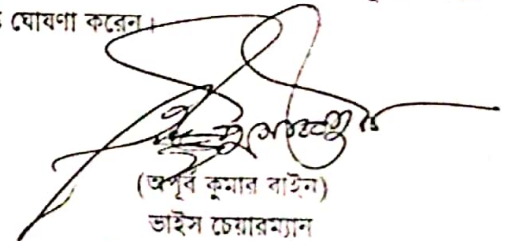 ঘোষণা করেন।
(অপূর্ব কুমার বাইন)
ভাইস চেয়ারম্যান